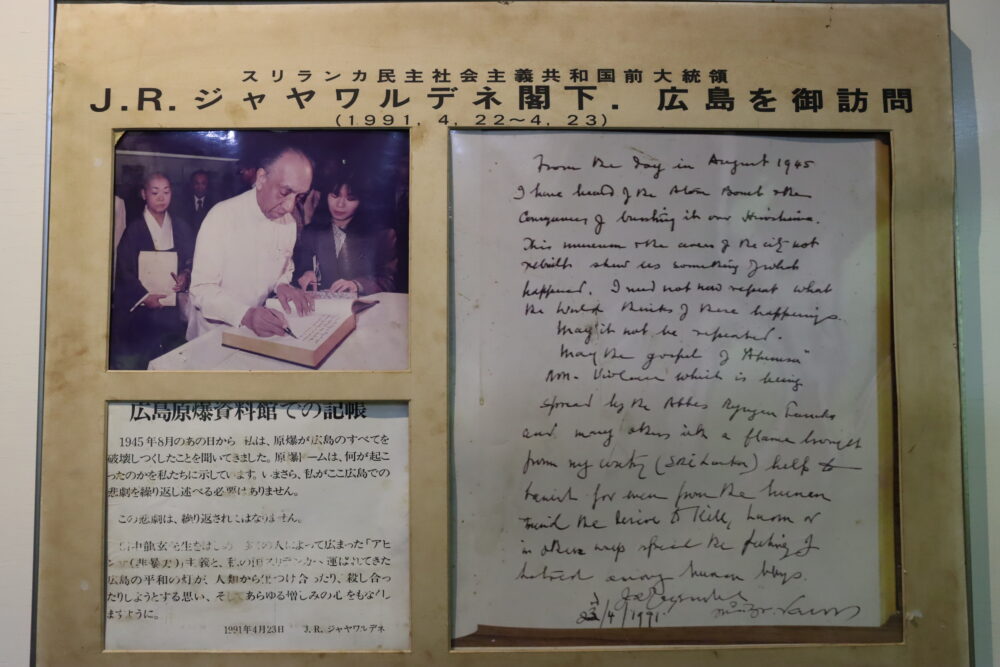 スリランカ民主社会主義共和国前大統領
J.R. ジャヤワルデネ閣下. 広島を御訪問
(1991, 4, 22〜4, 23)
From the day in August 1945
I have heard of the Atom Bomb & the
of bursting it over Hiroshima.
This museum & the areas of the city not
rebuilt show us something of what
happened. I need not now repeat what
the world thinks of these happenings.
May it not be repeated.
May the gospel of "Ahimsa"
Non-Violence which is being
spread by the
and many others with a flame brought
from my country (Sri Lanka) help to
banish for ever from the human
mind the desire to kill, harm or
in other ways spread the feeling of
hatred among human beings.
23/4/1991
広島原爆資料館での記帳
1945年8月のあの日から 私は、原爆が広島のすべてを
破壊しつくしたことを聞いてきました。原爆ドームは、何が起こ
ったのかを私たちに示しています。いまさら、私がここ広島での
悲劇を繰り返し述べる必要はありません。
この悲劇は、繰り返されてはなりません。
龍玄先生をはじめ 多くの人によって広まった「アヒ
ンサ(非暴力)」主義と、私の国スリランカから運ばれてきた
広島の平和の灯が、人類から傷つけ合ったり、殺し合っ
たりしようとする思い、そしてあらゆる憎しみの心をもなくし
ますように。
1991年4月23日 J.R. ジャヤワルデネ